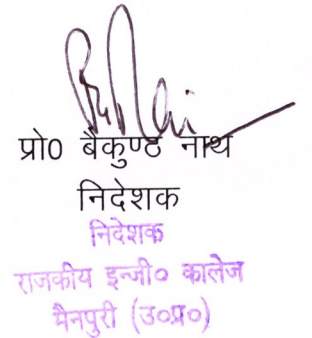 प्रो0 बैकुण्ठ नाथ
निदेशक
निदेशक
राजकीय इन्जी० कालेज
मैनपुरी (उ०प्र०)